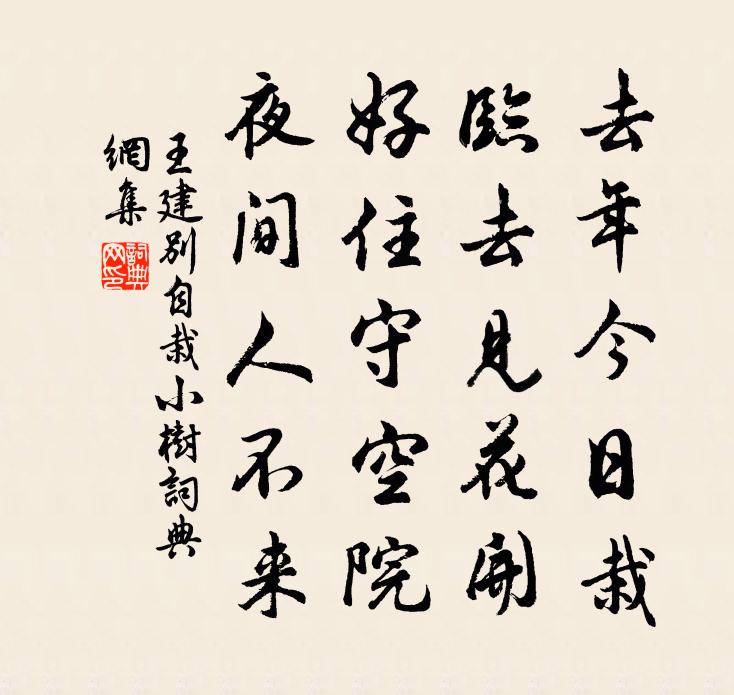 去年今日栽
臨去見花開
好住守空院
夜间人不来
王建别自栽小樹詞典
網集
詞典
网印